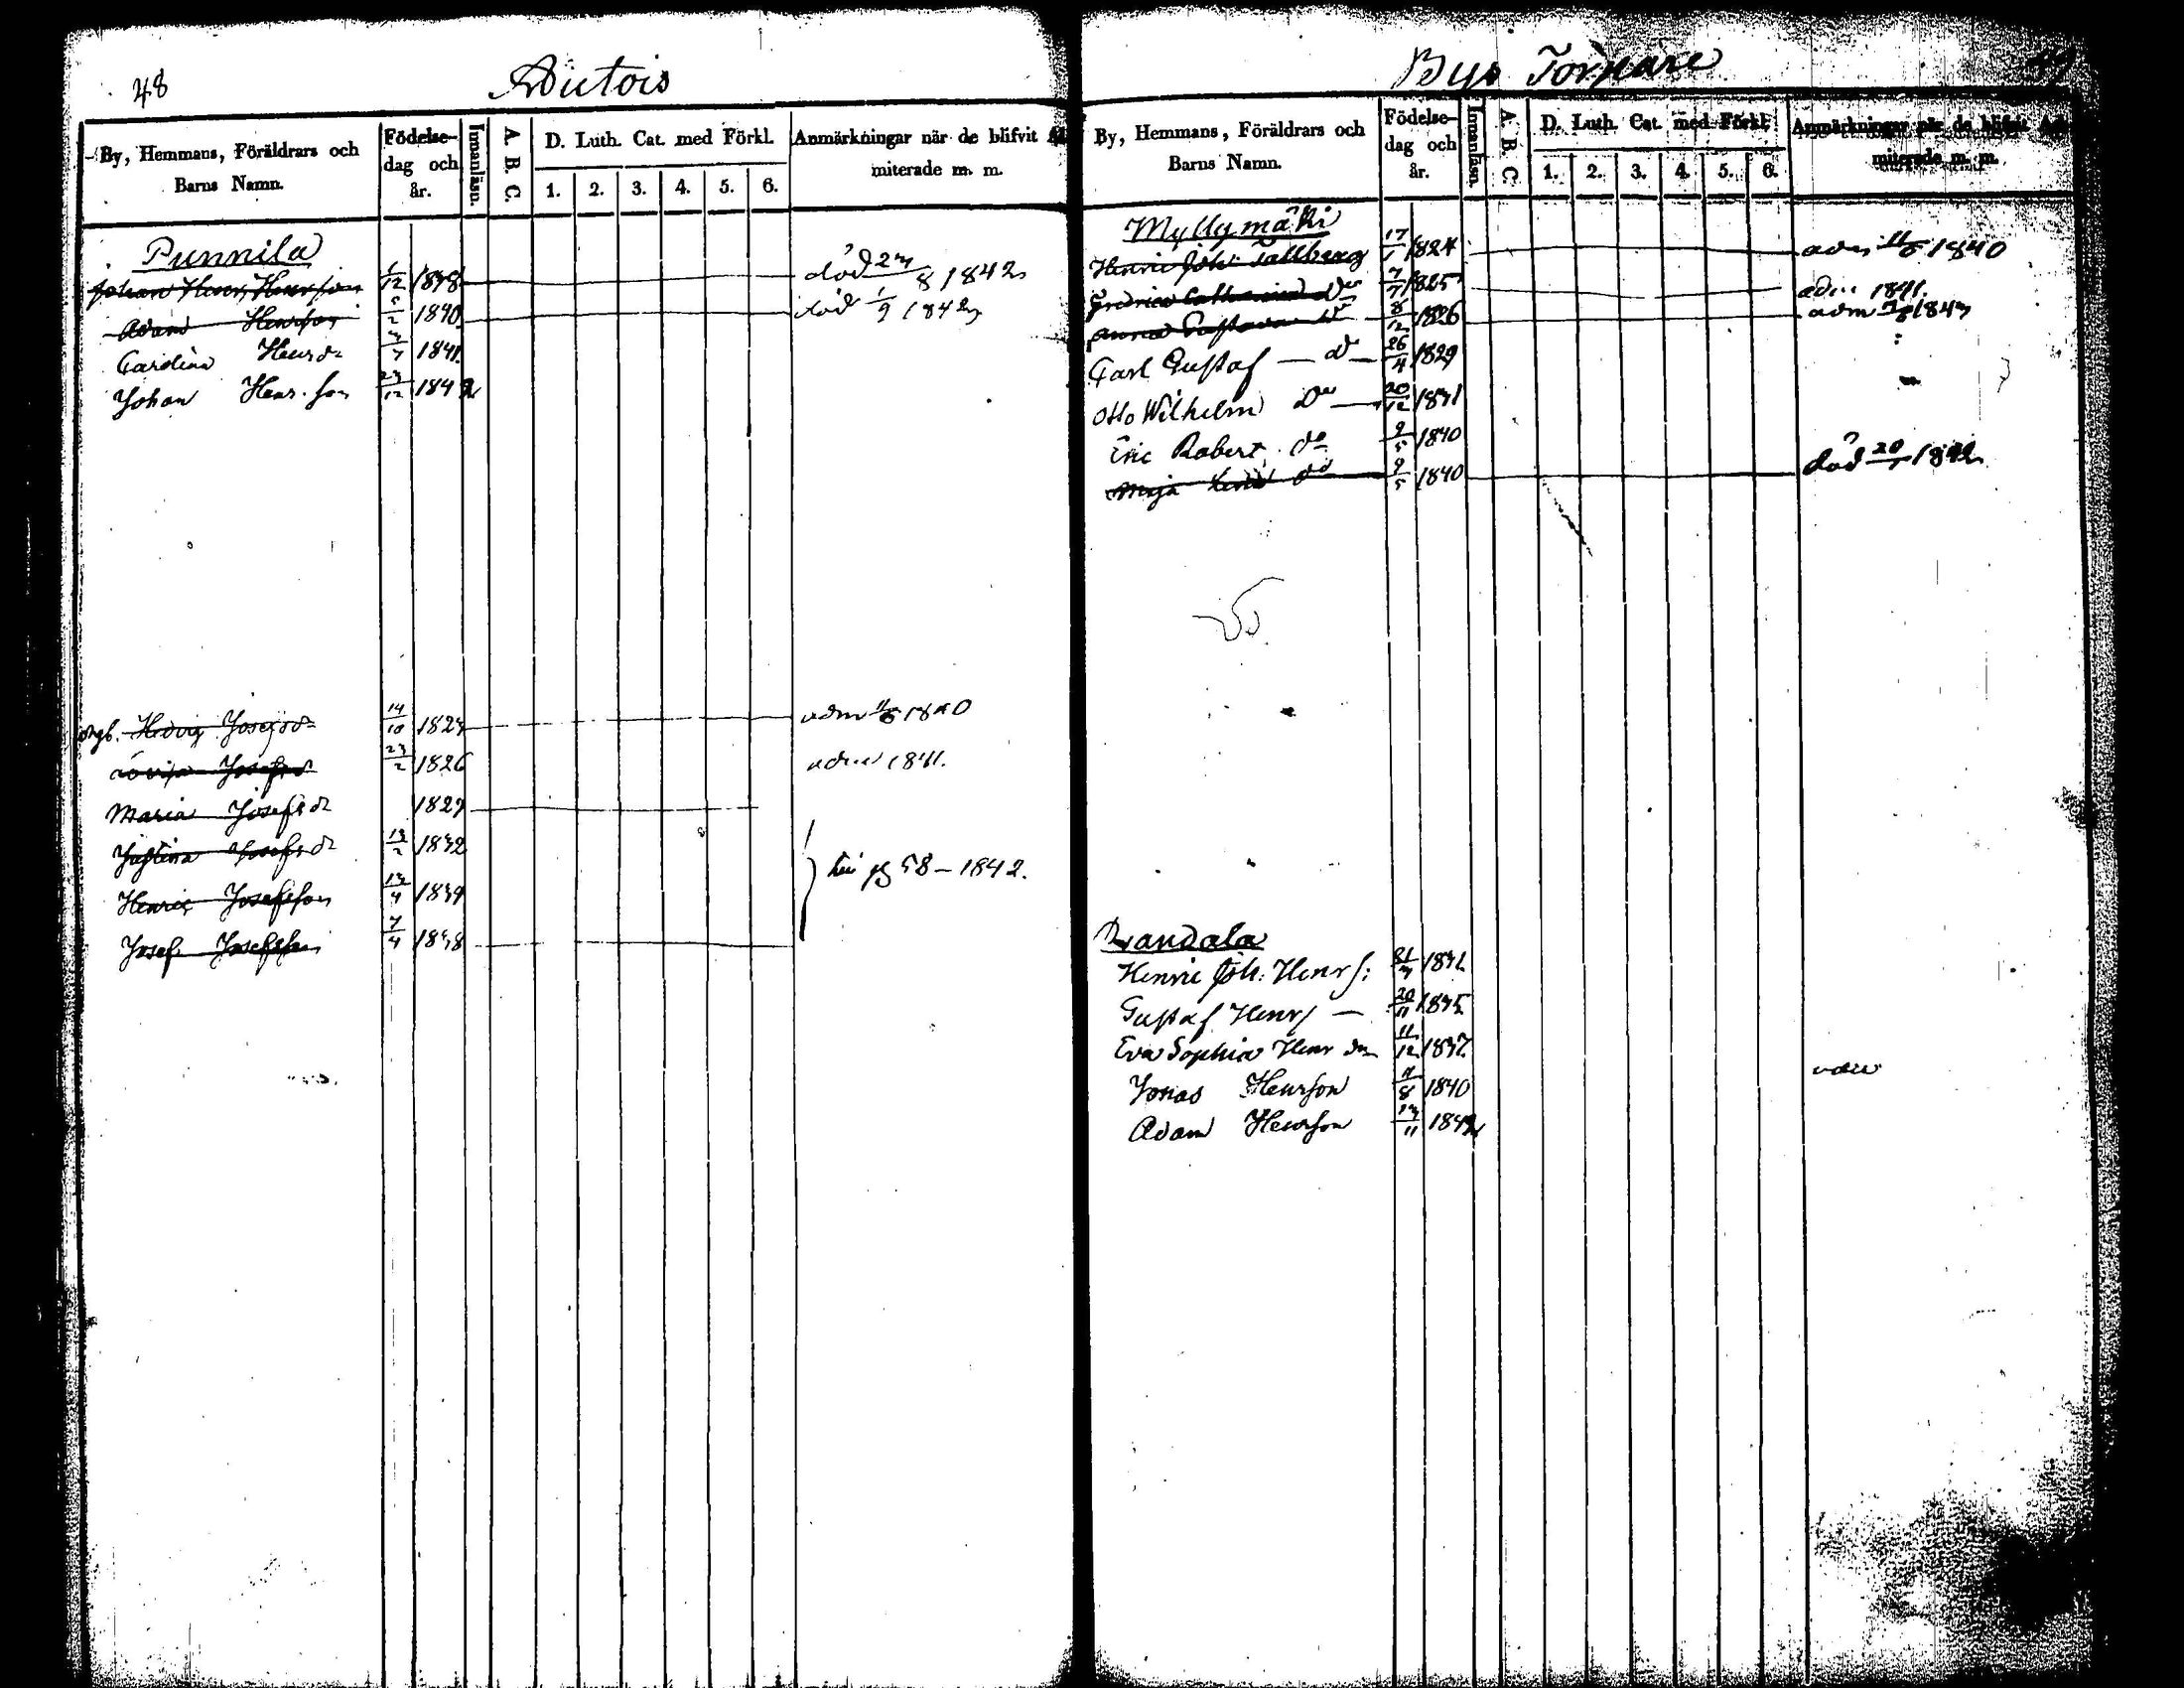 48
Autois
By, Hemmans, Föräldrars och Barns Namn.
Födelse-dag och år.
Innanläsn.
A. B. C.
D. Luth. Cat. med Förkl.
1. 2. 3. 4. 5. 6.
Anmärkningar när de blifvit
miterade m. m.
Punnila
Johan Henr. Henrsson 1/12 1838 död 23/8 1842
Adam Henrson 5/2 1840 död 1/9 1842
Carolina Henrsdr 1841
Johan Henr. son 23/12 1842
Hedvig Josefsdr 14/10 1823 adm 11/6 1840
Lovisa Josefsd 23/2 1826 adm 1841.
Maria Josefsdr 1829
Justina Josefsdr 13/2 1832
Henric Josefsson 13/4 1834
pg 58 - 1842.
Josef Josefsson 7/4 1838
Bys Torpare
49
By, Hemmans, Föräldrars och Barns Namn.
Födelse-dag och år.
Innanläsn.
A. B. C.
D. Luth. Cat. med Förkl.
1. 2. 3. 4. 5. 6.
Anmärkningar när de blifvit
miterade m. m.
Myllymäki
Henric Joh. Tallberg 17/1 1824 adm 11/6 1840
Fredrica Catharina do 7/7 1825 adm 1841.
Anna Gustava do 8/12 1826 adm 1843
Carl Gustaf — do — 26/4 1829
Otto Wilhelm do — 20/12 1831
Eric Robert do 9/5 1840
Maja do 9/5 1840 död 20/1 1842
Randala
Henric Joh: Henrs: 31/3 1832
Gustaf Henrs — 20/11 1835
Eva Sophia Henr dr 11/12 1837
Jonas Henrson 8 1840
Adam Henrson 13/11 1842